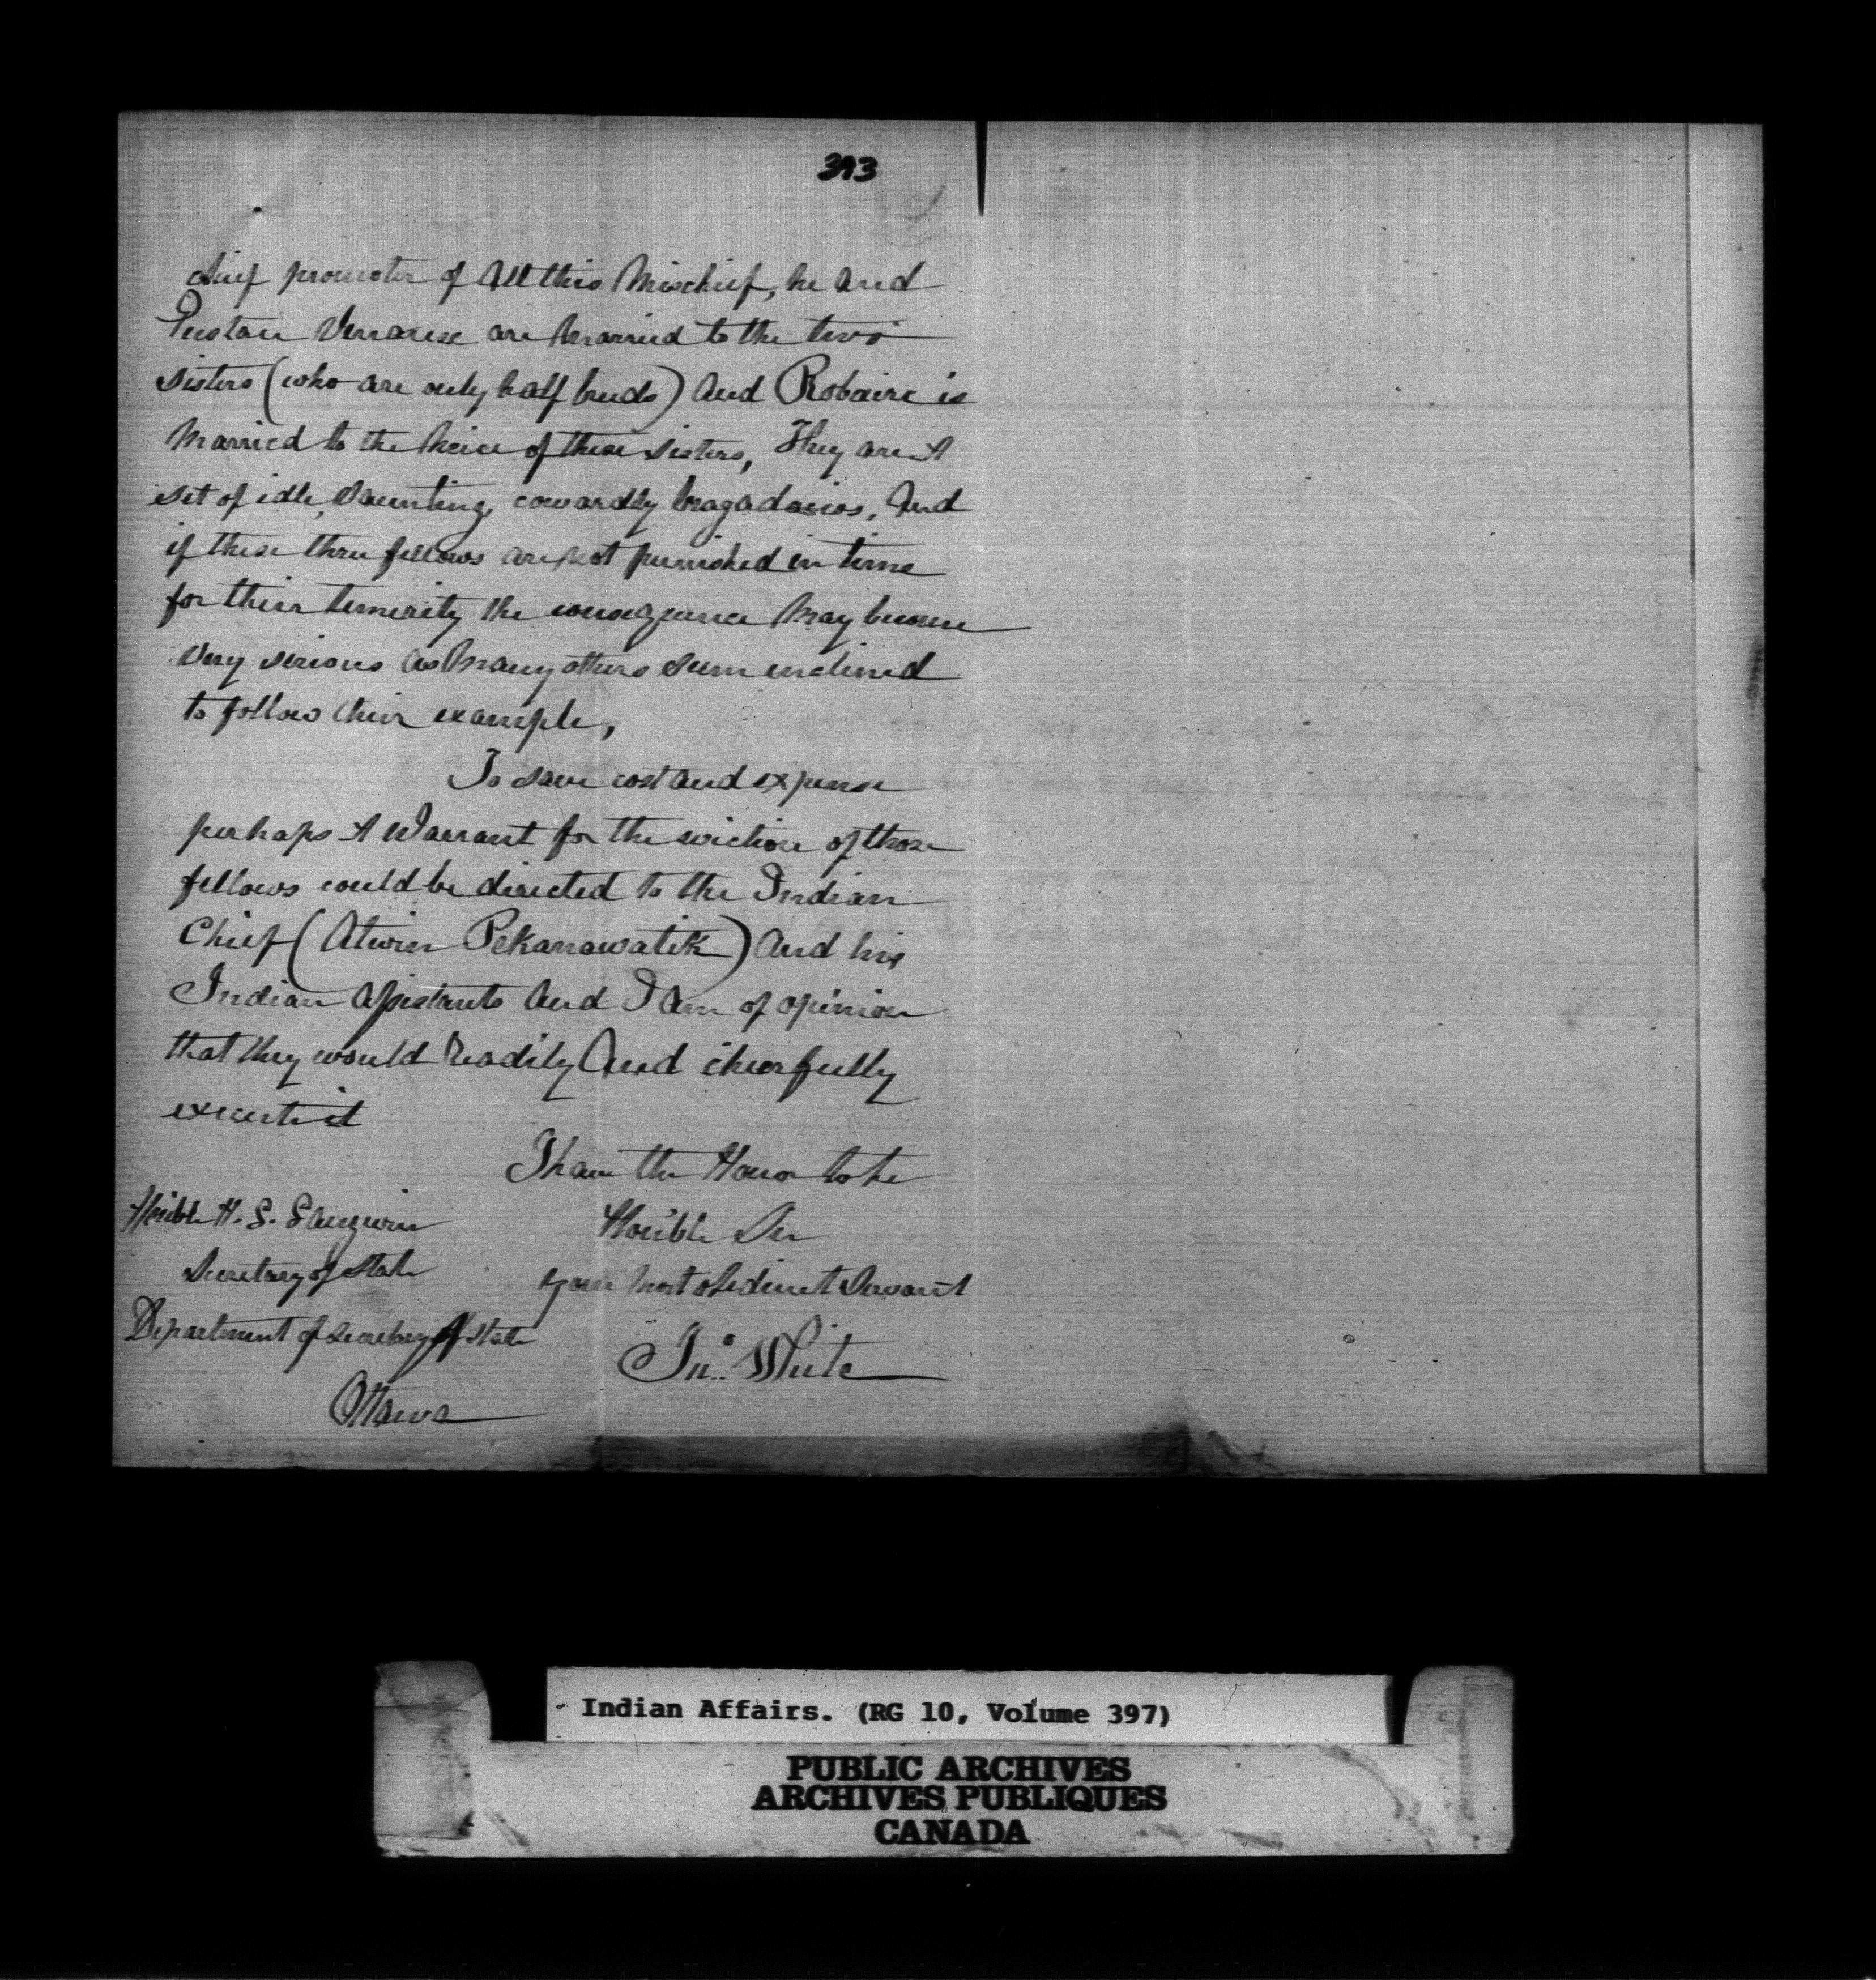 393
chief promoter of All this Mischief, he And
are Married to the two
sisters (who are only half breeds) And Robaire is
Married to the Neice of these sisters, They are A
set of idle, vaunting, cowardly bragadosios, And
if these three fellows are Not punished in time
for their temerity the consequence May become
very serious as Many others seem inclined
to follow their example,
To save cost and expense
perhaps A Warrant for the eviction of those
fellows could be directed to the Indian
Chief (Atwin Pekanawatik) And his
Indian Assistants And I Am of opinion
that they would Readily And cheerfully
execute it
I have the Honor to be
Hon'ble Sir
Your Most obedient Servant
Jno. White
Hon'ble H. L. Langevin
Secretary of State
Department of Secretary of State
Ottawa
Indian Affairs. (RG 10, Volume 397)
PUBLIC ARCHIVES
ARCHIVES PUBLIQUES
CANADA